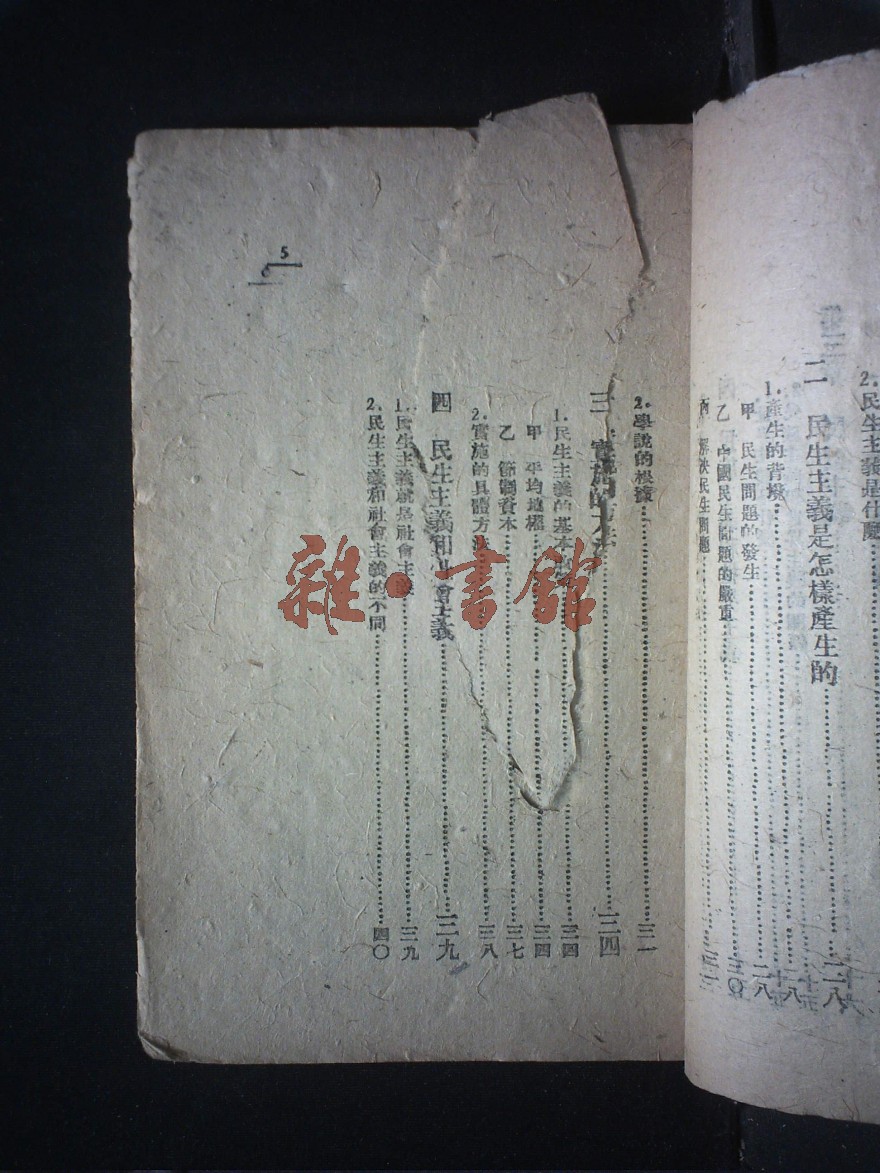 2.民生主義是什麼
二 民生主義是怎樣產生的……二八
1.產生的背境……二八
甲 民生問題的發生
乙 中國民生問題的嚴重……三〇
丙 解決民生問題
2.學說的根據……三一
三 實施的方法……三四
1.民生主義的基本……三四
甲 平均地權……三四
乙 節制資本……三七
2.實施的具體方法……三八
四 民生主義和社會主義……三九
1.民生主義就是社會主義……三九
2.民生主義和社會主義的不同……四〇
5
6
雜·書館